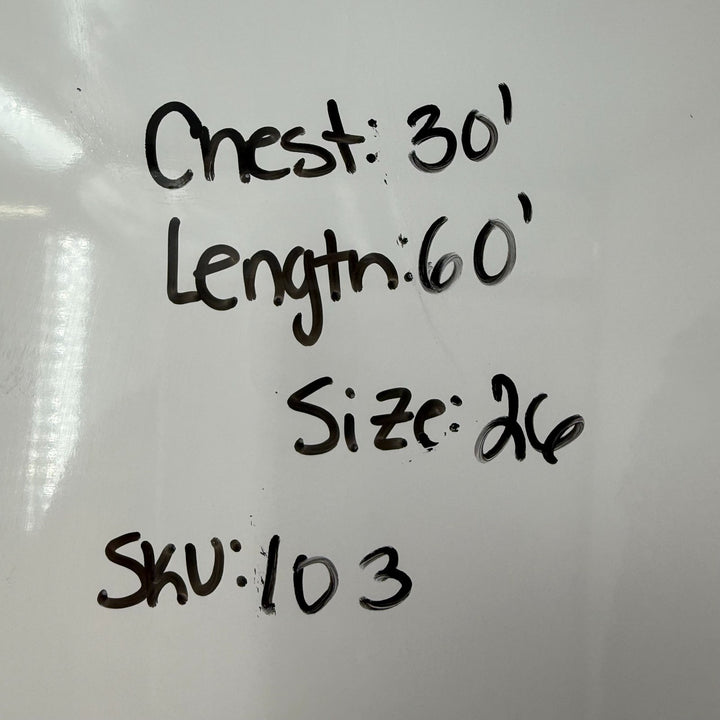 Chest: 30'
Length: 60'
Size: 26
SKU: 103